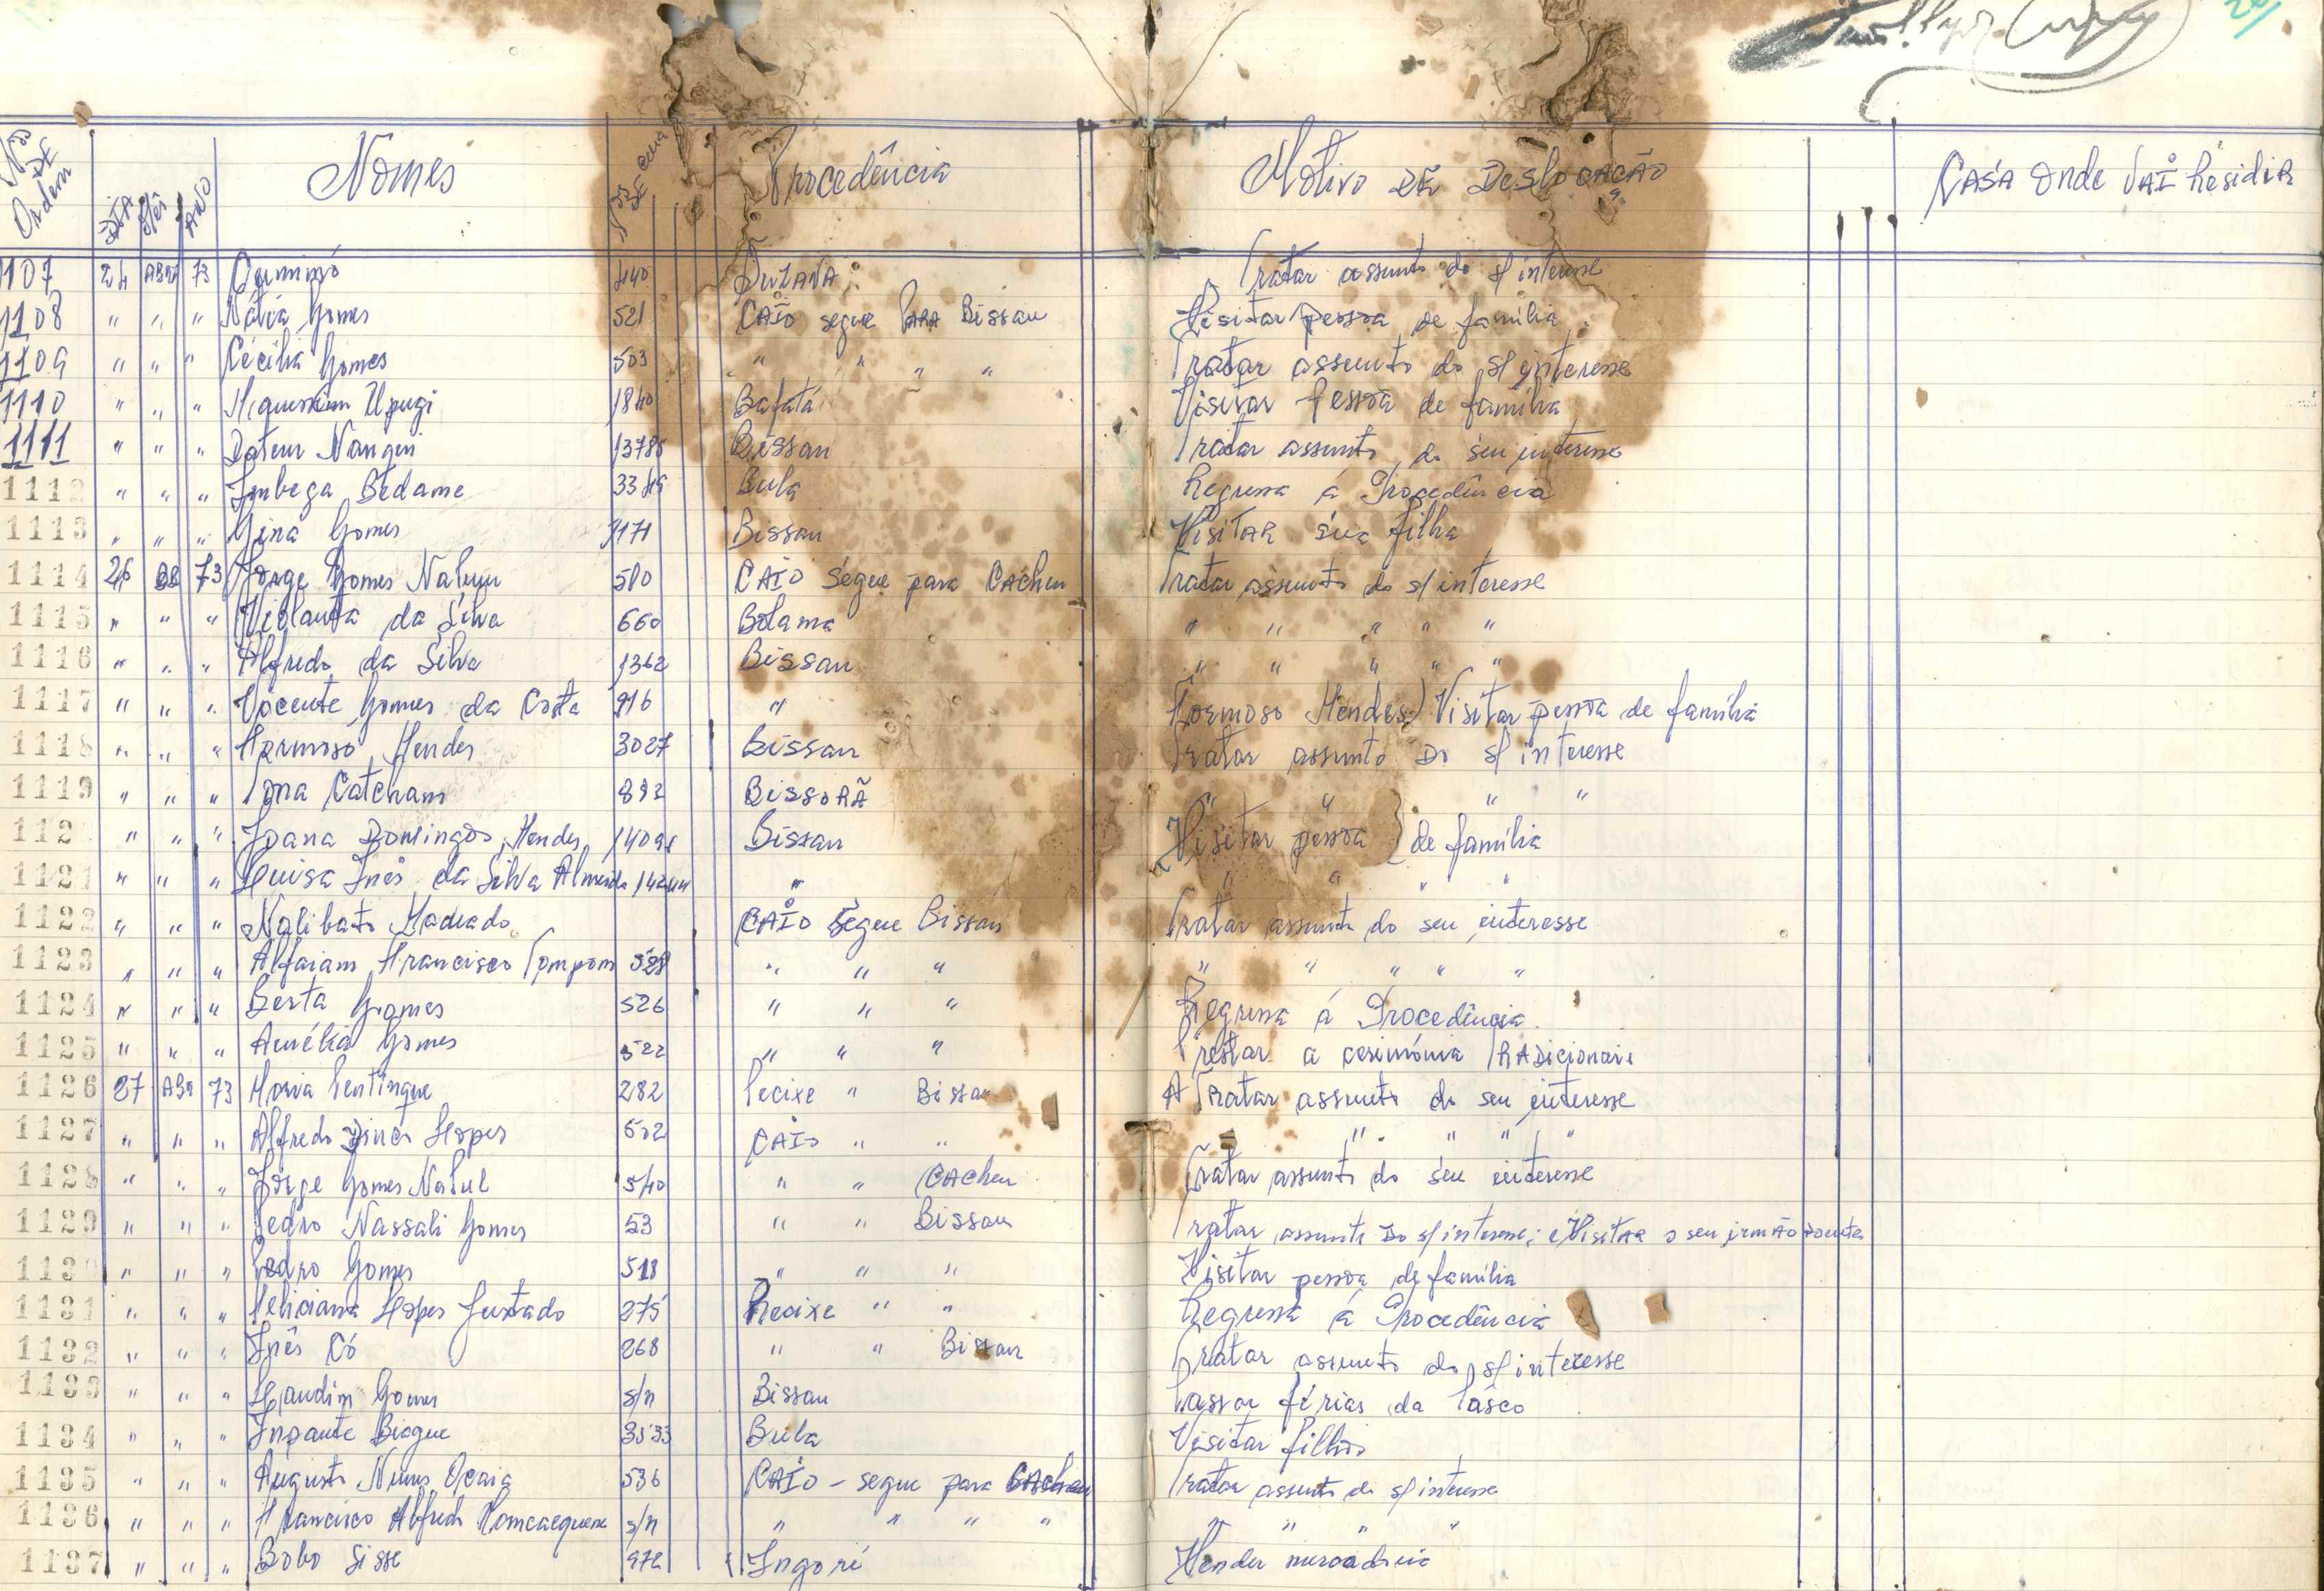 Nº DE Ordem DIA Mês ANO Nomes Nº DE Procedência Motivo DE DeslocAcÃO CASA onde VAI Residir
1107 24 ABR 73 440 Tratar assunto do s/ interesse
1108 " " " Gomes 521 CAIO segue PARA Bissau Visitar pessoa de família
1109 " " " Cecília Gomes 503 " " " " Tratar assunto do s/ interesse
1110 " " " 1840 Bafatá Visitar Pessoa de família
1111 " " " 13785 Bissau Tratar assunto do seu interesse
1112 " " " Bedame 3349 Bula Regressa á Procedência
1113 " " " Gina Gomes 1171 Bissau VisitAR sua filha
1114 26 73 Jorge Gomes 580 CAIO Segue para CAcheu Tratar assunto do s/ interesse
1115 " " " da Silva 660 Bolama " " " " "
1116 " " " Alfredo da Silva 1362 Bissau " " " " "
1117 " " " Vicente Gomes da Costa 916 " (Formoso Mendes) Visitar pessoa de família
1118 " " " Formoso Mendes 3027 Bissau Tratar assunto Do s/ interesse
1119 " " " Catcham 892 BissoRÃ " " " "
112 " " " Joana Domingos Mendes Bissau Visitar pessoa } de família
1121 " " " Luisa Inês da Silva Almeida " " " " "
1122 " " " CAIO Segue Bissau Tratar assunto do seu interesse
1123 " " " Francisco 528 " " " " " " " "
1124 " " " Berta Gomes 526 " " " Regressa á Procedência.
1125 " " " Aurélia Gomes 522 " " " Prestar a cerimónia TRADicionais
1126 27 ABR 73 Maria 282 Pecixe " Bissau A TRatar assunto do seu interesse
1127 " " " Alfredo Lopes 502 CAIO " " " " " "
1128 " " " Jorge Gomes 540 " " CACheu Tratar assunto do seu interesse
1129 " " " Pedro Nassali Gomes 53 " " Bissau Tratar assunto Do s/ interesse; e VisitAR o seu irmÃO doente
1130 " " " Pedro Gomes 518 " " " Visitar pessoa de família
1131 " " " Feliciana Lopes Furtado 275 Pecixe " " Regressa á Procedência
1132 " " " Inês Có 268 " " Bissau Tratar assunto do s/ interesse
1133 " " " Gomes s/n Bissau Passar férias da Pásco
1134 " " " Biague 3533 Bula Visitar filhos
1135 " " " Augusto Nunes 536 CAIO - segue para CAcheu Tratar assunto do s/ interesse
1136 " " " Francisco Alfredo s/n " " " " " " " "
1137 " " " Bobo Sisse 972 Ingoré Vender mercadoria